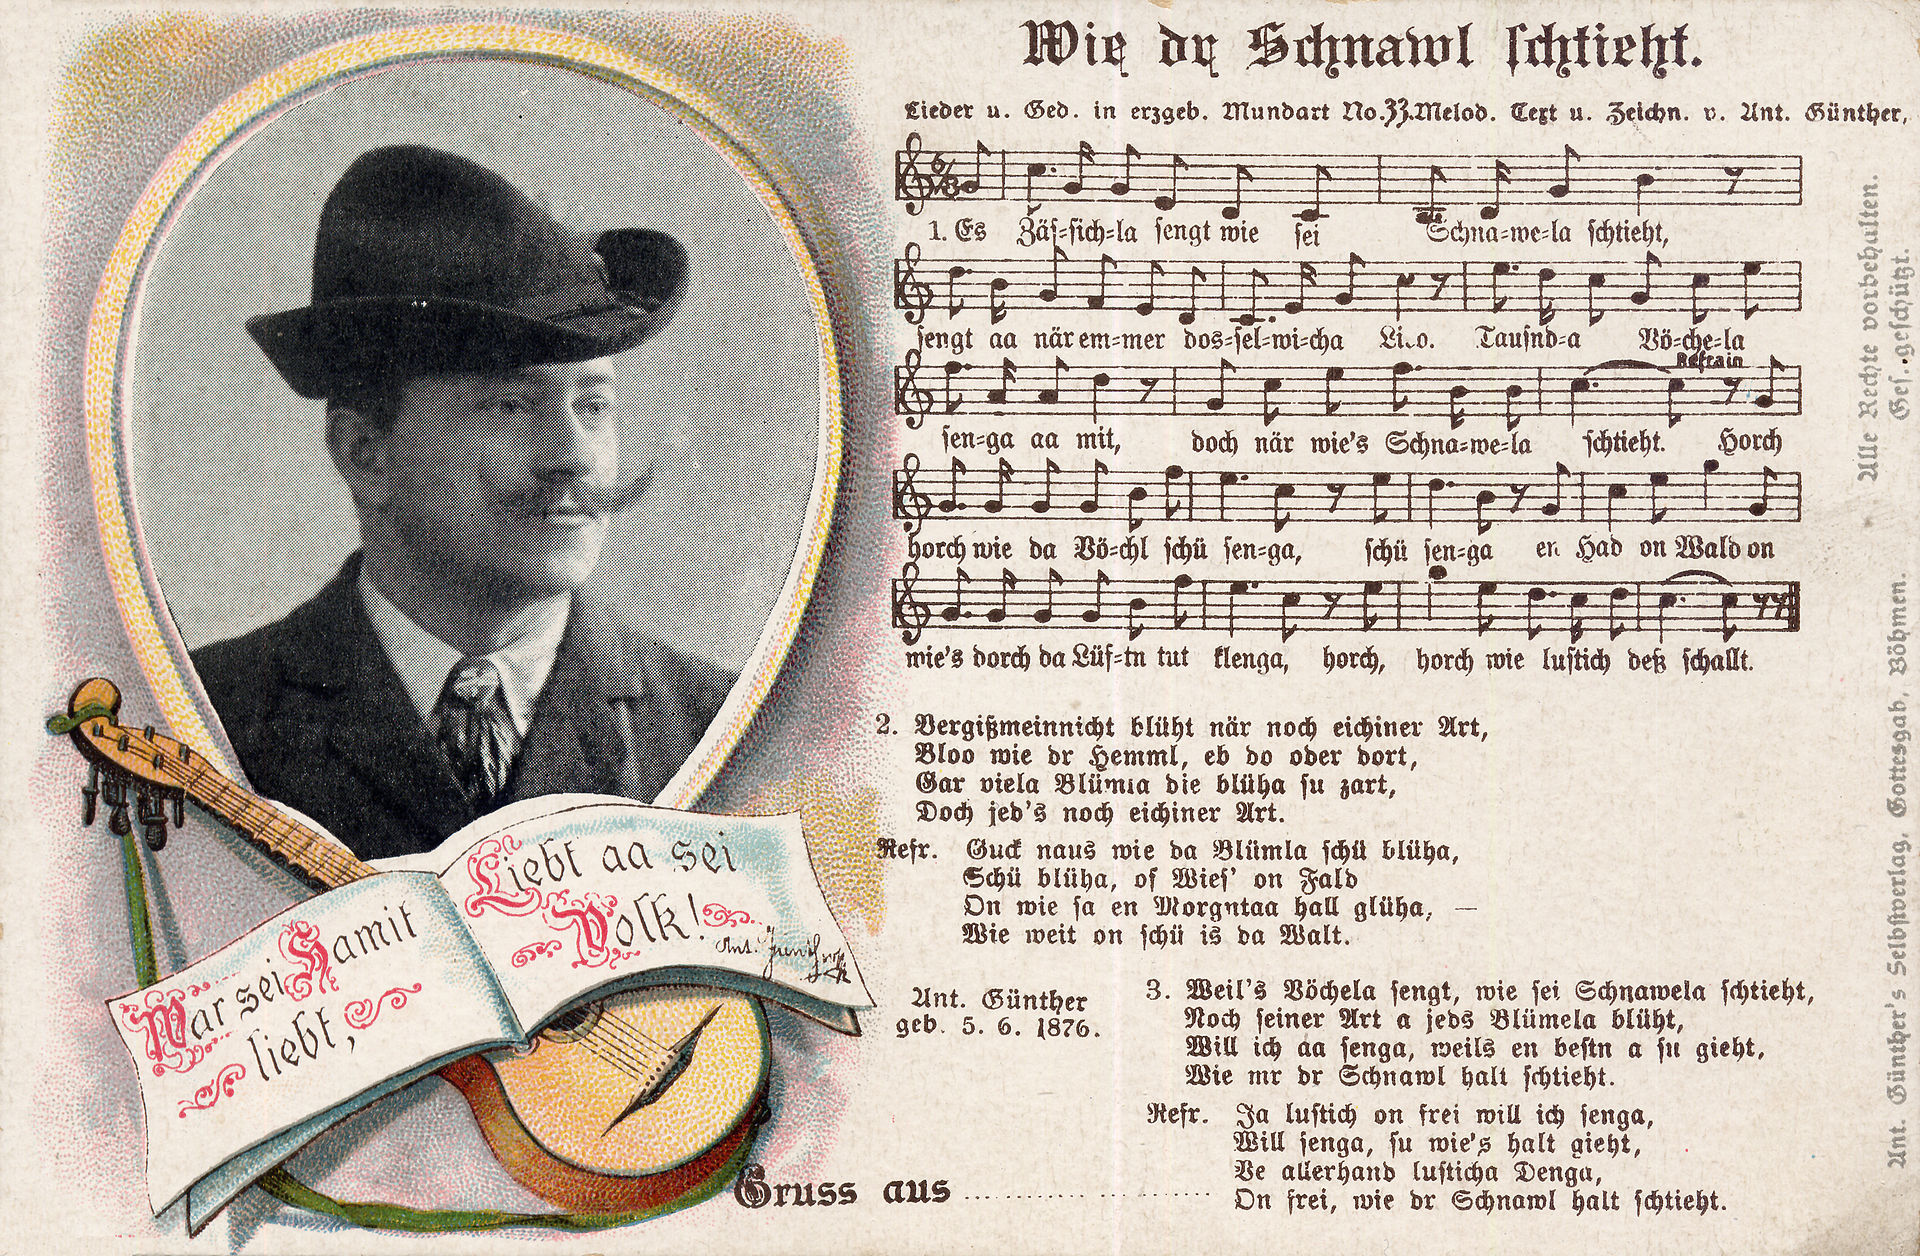 Wie dr Schnawl schtieht.
Lieder u. Ged. in erzgeb. Mundart No. 33. Melod. Text u. Zeichn. v. Ant. Günther,
1. Es Zäs=sich=la sengt wie sei Schna=we=la schtieht,
sengt aa när em=mer dos=sel=wi=cha Tausnd=a Vö=che=la
Refrain
sen=ga aa mit, doch när wie's Schna=we=la schtieht. Horch
horch wie da Vö=chl schü sen=ga, schü sen=ga en Had on Wald on
wie's dorch da Lüf=tn tut klenga, horch, horch wie lustich deß schallt.
2. Vergißmeinnicht blüht när noch eichiner Art,
Bloo wie dr Hemml, eb do oder dort,
Gar viela Blümla die blüha su zart,
Doch jed's noch eichiner Art.
Refr. Guck naus wie da Blümla schü blüha,
Schü blüha, of Wies' on Fald
On wie sa en Morgntaa hall glüha, —
Wie weit on schü is da Walt.
3. Weil's Vöchela sengt, wie sei Schnawela schtieht,
Noch seiner Art a jeds Blümela blüht,
Will ich aa senga, weils en bestn a su gieht,
Wie mr dr Schnawl halt schtieht.
Refr. Ja lustich on frei will ich senga,
Will senga, su wie's halt gieht,
Ve allerhand lusticha Denga,
On frei, wie dr Schnawl halt schtieht.
Ant. Günther
geb. 5. 6. 1876.
War sei Hamit
liebt,
Liebt aa sei
Volk!
Ant. Günther
Gruss aus
Alle Rechte vorbehalten.
Ges. geschützt.
Ant. Günther's Selbstverlag, Gottesgab, Böhmen.